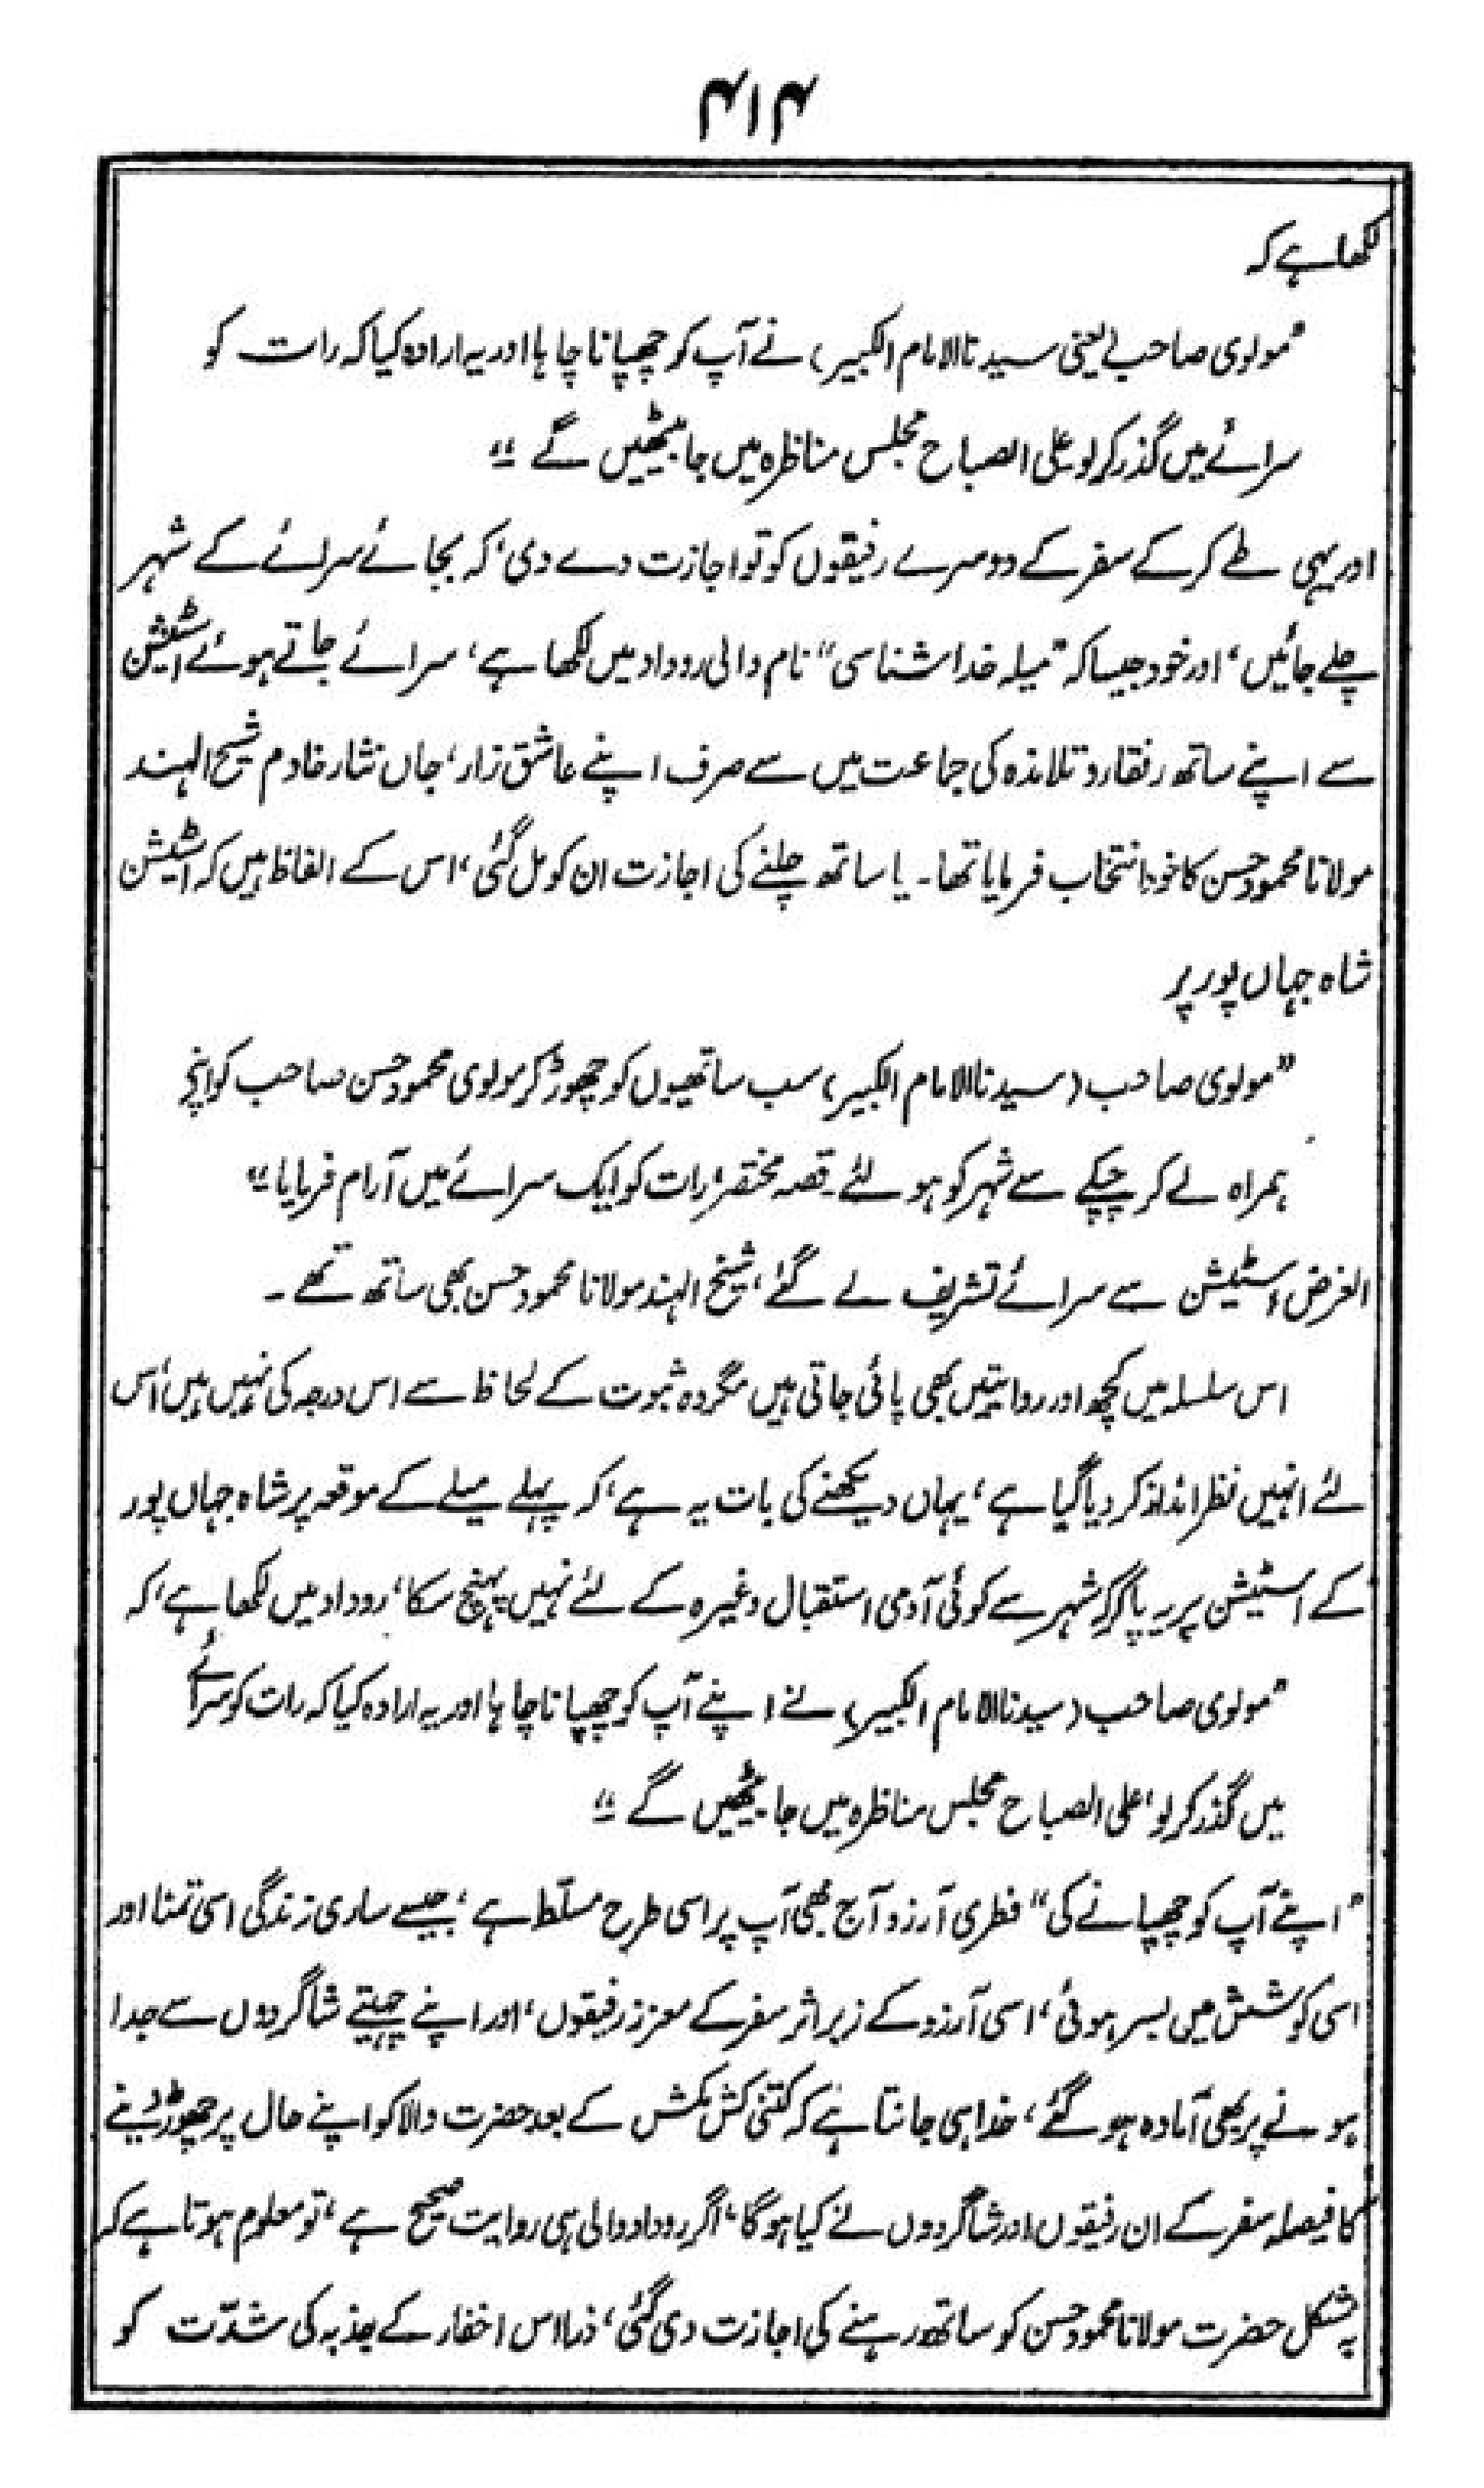 ۴۱۴
لکھا ہے کہ
"مولوی صاحب (یعنی سیدنا الامام الکبیر) نے آپ کو چھپانا چاہا اور یہ ارادہ کیا کہ رات کو
سرائے میں گذر کر لو علی الصباح مجلس مناظرہ میں جا بیٹھیں گے"
اور یہی طے کر کے سفر کے دوسرے رفیقوں کو تو اجازت دے دی، کہ بجائے سرائے کے شہر
چلے جائیں، اور خود جیسا کہ "میلہ خدا شناسی" نام والی روداد میں لکھا ہے، سرائے جاتے ہوئے اسٹیشن
سے اپنے ساتھ رفقاء و تلامذہ کی جماعت میں سے صرف اپنے عاشق زار، جاں نثار خادم شیخ الہند
مولانا محمود حسن کا خود انتخاب فرمایا تھا۔ یا ساتھ چلنے کی اجازت ان کو مل گئی، اس کے الفاظ ہیں کہ اسٹیشن
شاہ جہاں پور پر
"مولوی صاحب (سیدنا الامام الکبیر) سب ساتھیوں کو چھوڑ کر مولوی محمود حسن صاحب کو اپنی
ہمراہ لے کر چپکے سے شہر کو ہو لئے۔ قصہ مختصر، رات کو ایک سرائے میں آرام فرمایا"
الغرض اسٹیشن سے سرائے تشریف لے گئے، شیخ الہند مولانا محمود حسن بھی ساتھ تھے۔
اس سلسلہ میں کچھ اور روایتیں بھی پائی جاتی ہیں مگر وہ ثبوت کے لحاظ سے اس درجہ کی نہیں ہیں، اس
لئے انہیں نظر انداز کر دیا گیا ہے، یہاں دیکھنے کی بات یہ ہے، کہ پہلے میلے کے موقعہ پر شاہ جہاں پور
کے اسٹیشن پر یہ پا کر کہ شہر سے کوئی آدمی استقبال وغیرہ کے لئے نہیں پہنچ سکا، روداد میں لکھا ہے، کہ
"مولوی صاحب (سیدنا الامام الکبیر) نے اپنے آپ کو چھپانا چاہا اور یہ ارادہ کیا کہ رات کو سرائے
میں گذر کر لو، علی الصباح مجلس مناظرہ میں جا بیٹھیں گے"
"اپنے آپ کو چھپانے کی" فطری آرزو آج بھی آپ پر اسی طرح مسلّط ہے، جیسے ساری زندگی اسی تمنا اور
اسی کوشش میں بسر ہوئی، اسی آرزو کے زیر اثر سفر کے معزز رفیقوں، اور اپنے چہیتے شاگردوں سے جدا
ہونے پر بھی آمادہ ہو گئے، خدا ہی جانتا ہے کہ کتنی کش مکش کے بعد حضرت والا کو اپنے حال پر چھوڑ دینے
کا فیصلہ سفر کے ان رفیقوں اور شاگردوں نے کیا ہوگا، اگر روداد والی ہی روایت صحیح ہے، تو معلوم ہوتا ہے کہ
بہ شکل حضرت مولانا محمود حسن کو ساتھ رہنے کی اجازت دی گئی، ذرا اس اخفاء کے جذبہ کی شدّت کو